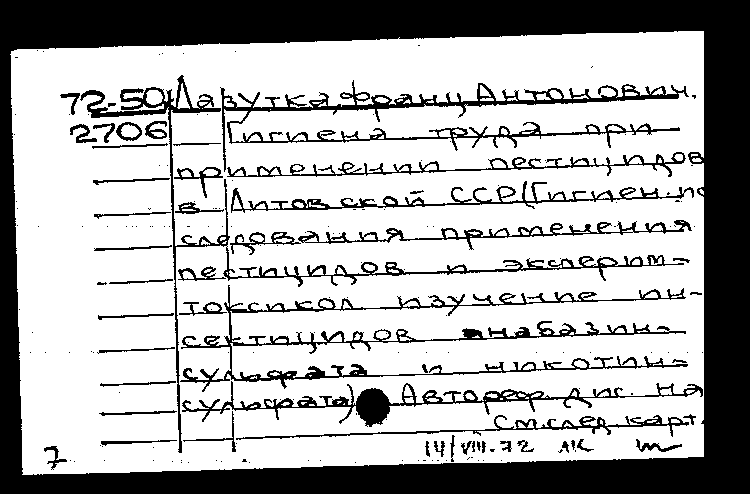 72-50 Лазутка, Франц Антонович.
2706 Гигиена труда при
применении пестицидов
в Литовской ССР (Гигиен. по
следования применения
пестицидов и эксперим-
токсикол изучение ин-
сектицидов анабазин-
сульфата и никотин-
сульфата) Автореф. дис. на
См. след. карт.
7 IV/VIII.72 ЛК